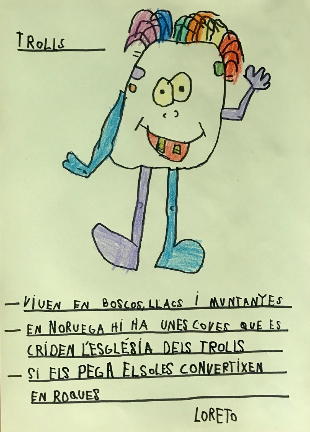 TROLLS
- VIVEN EN BOSCOS, LLACS I MUNTANYES
- EN NORUEGA HI HA UNES COVES QUE ES
CRIDEN L'ESGLÉSIA DELS TROLLS
- SI ELS PEGA ELSOL ES CONVERTIXEN
EN ROQUES
LORETO